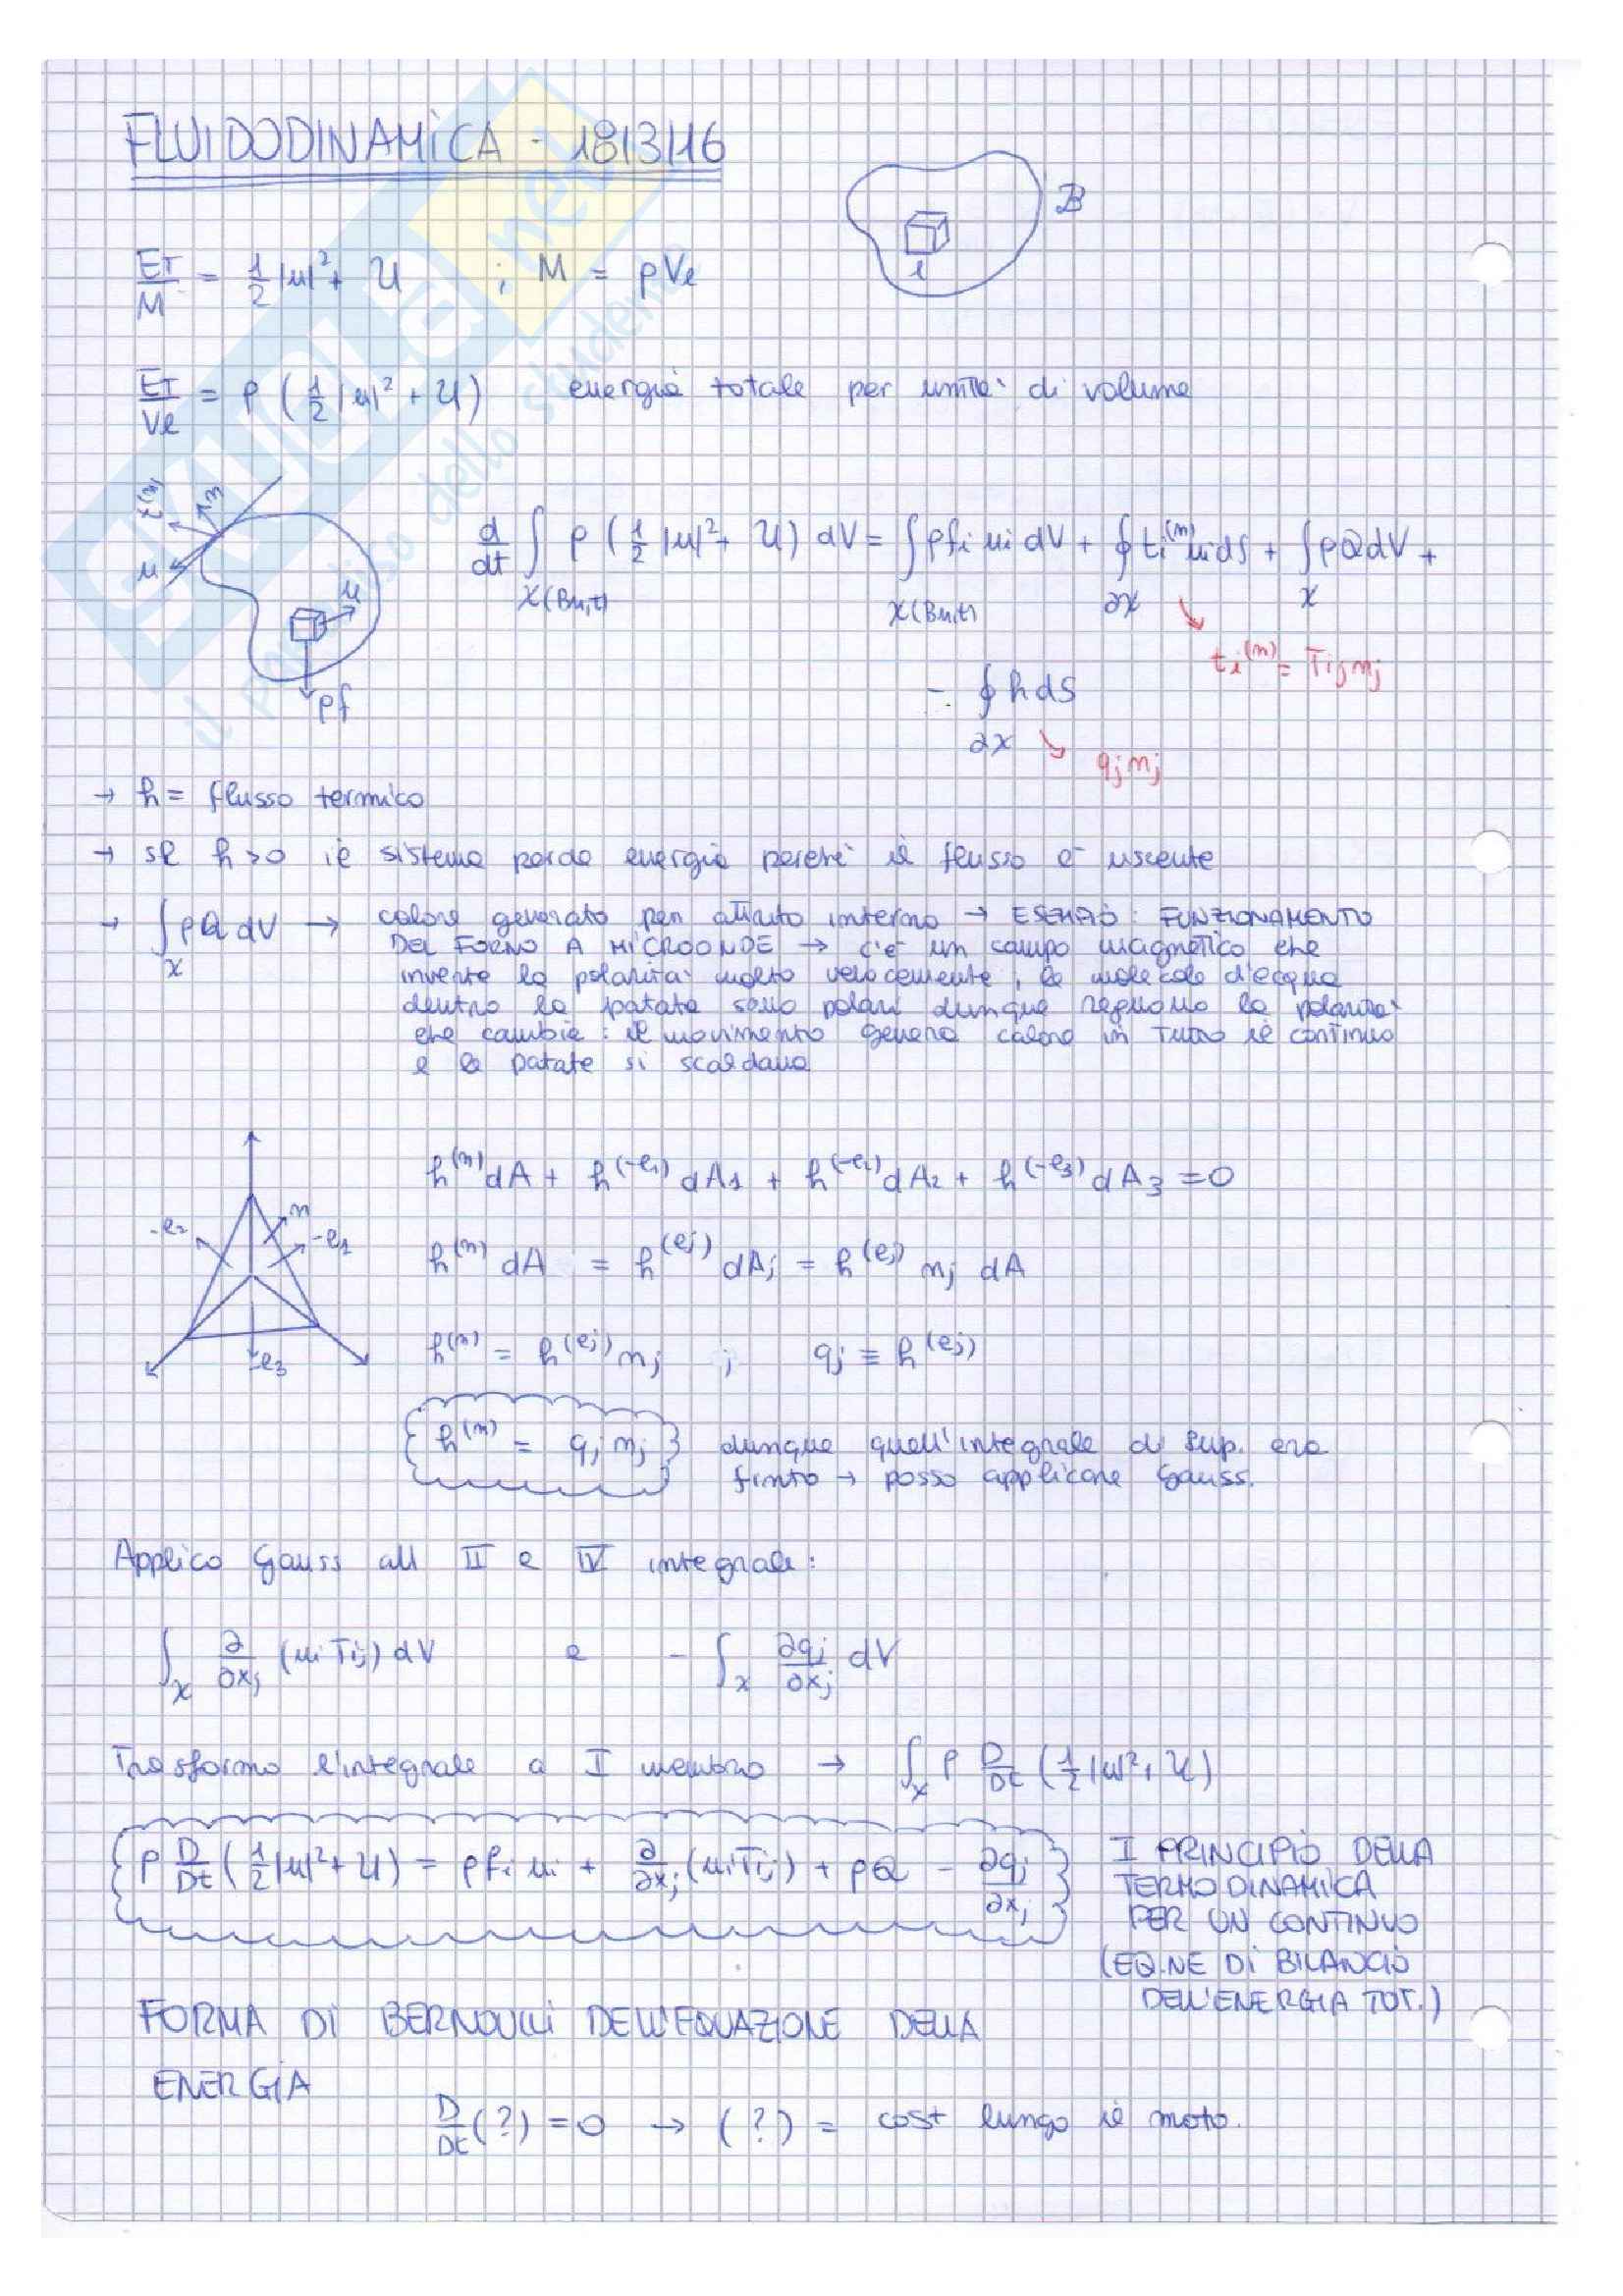 FLUIDODINAMICA - 18/3/16
B
l
E_T/M = 1/2 |u|² + U ; M = ρVl
E_T/Vl = ρ (1/2 |u|² + U) energia totale per unità di volume
t(n) n
u
u
ρf
d/dt ∫ ρ (1/2 |u|² + U) dV = ∫ ρ fi ui dV + ∮ ti(n) ui dS + ∫ ρQ dV +
χ(Bu,t) χ(Bu,t) ∂χ χ
ti(n) = Tij nj
- ∮ h dS
∂χ qj nj
→ h = flusso termico
→ se h > 0 il sistema perde energia perché il flusso è uscente
→ ∫χ ρQ dV → calore generato per attrito interno → ESEMPIO: FUNZIONAMENTO
DEL FORNO A MICROONDE → c'è un campo magnetico che
inverte la polarità molto velocemente, le molecole d'acqua
dentro la patata sono polari dunque seguono la polarità
che cambia: il movimento genera calore in tutto il continuo
e le patate si scaldano
h(n) dA + h(-e1) dA1 + h(-e2) dA2 + h(-e3) dA3 = 0
-e2 n -e1
h(n) dA = h(ej) dAj = h(ej) nj dA
-e3
h(n) = h(ej) nj ; qj ≡ h(ej)
h(n) = qj nj dunque quell'integrale di sup. era
finto → posso applicare Gauss.
Applico Gauss all II e IV integrale:
∫χ ∂/∂xj (ui Tij) dV e - ∫χ ∂qj/∂xj dV
Trasformo l'integrale a I membro → ∫χ ρ D/Dt (1/2 |u|² + U)
ρ D/Dt (1/2 |u|² + U) = ρ fi ui + ∂/∂xj (ui Tij) + ρQ - ∂qj/∂xj
I PRINCIPIO DELLA
TERMODINAMICA
PER UN CONTINUO
(EQ.NE DI BILANCIO
DELL'ENERGIA TOT.)
FORMA DI BERNOULLI DELL'EQUAZIONE DELLA
ENERGIA
D/Dt (?) = 0 → (?) = cost lungo il moto.
SKUOLA.net
il paradiso dello studente